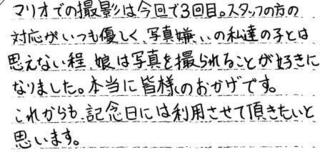 マリオでの撮影は今回で3回目。スタッフの方の
対応がいつも優しく、写真嫌いの私達の子とは
思えない程、娘は写真を撮られることが好きに
なりました。本当に皆様のおかげです。
これからも、記念日には利用させて頂きたいと
思います。